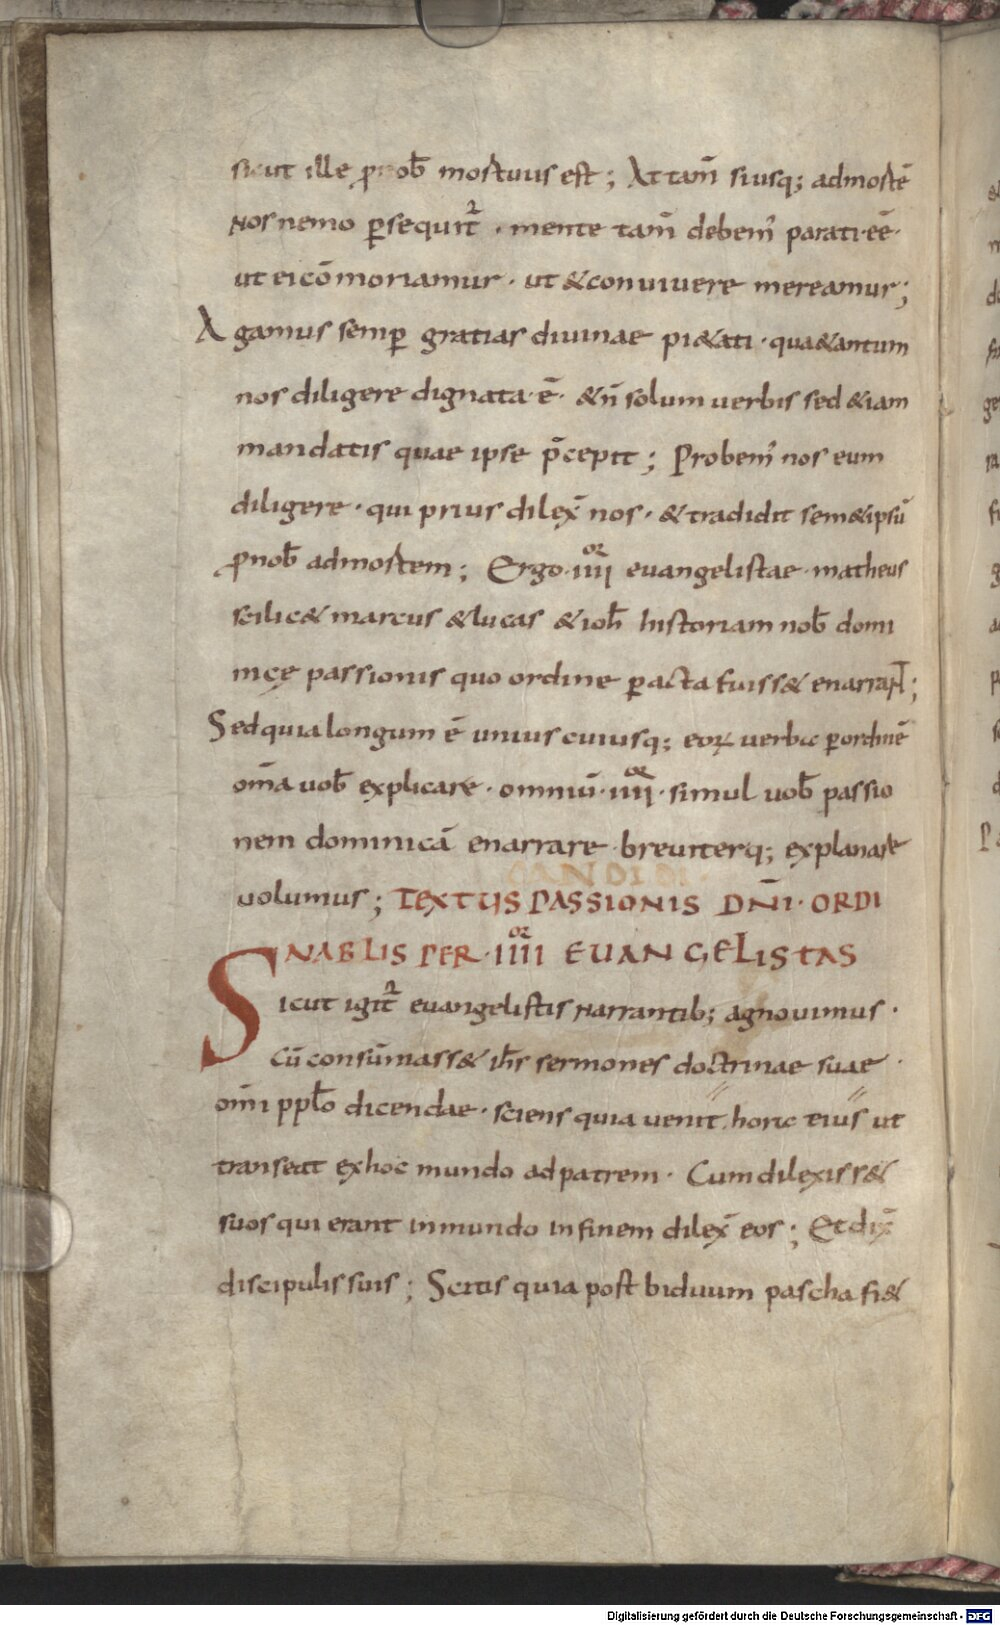 sicut ille ꝓ nob̄ mortuus est; At tam̄ siusq; admortē
Nos nemo ꝑsequit᷑ · mente tam̄ debem᾽ parati·eē·
ut ei cōmoriamur · ut &conuiuere mereamur;
Agamus semꝑ gratias diuinae pi&ati · qua&antum
nos diligere dignata·ē· &n̄ solum uerbis sed &iam
mandatis quae ipse p̄cepit; Probem᾽ nos eum
diligere · qui prius dilex̄ nos · & tradidit sem&ipsū
ꝓnob̄ admortem; Ergo·IIIIor euangelistae·matheus
scilic& marcus &lucas &ioh̄ historiam nob̄ domi
nicę passionis quo ordine ꝑacta fuiss& enarraɴᴛ;
Sed quia longum ē unius cuiusq; eoꝝ uerba ꝑordinē
om̄a uob̄ explicare · omniū·IIIIor·simul uob̄ passio
nem dominicā enarrare breuiterq; explanare
uolumus; TEXTUS PASSIONIS DN̄I· ORDI
NABLIS PER·IIIIor EUANGELISTAS
Sicut igit᷑ euangelistis Narrantib; agnouimus ·
Cū consūmass& ih̄s sermones doctrinae suae ·
om̄i ppl̄o dicendae · sciens quia uenit hora eius ut
transeat exhoc mundo adpatrem · Cum dilexiss&
suos qui erant inmundo infinem dilex̄ eos; Et dix̄
discipulis suis; Scitis quia post biduum pascha fi&
Digitalisierung gefördert durch die Deutsche Forschungsgemeinschaft - DFG